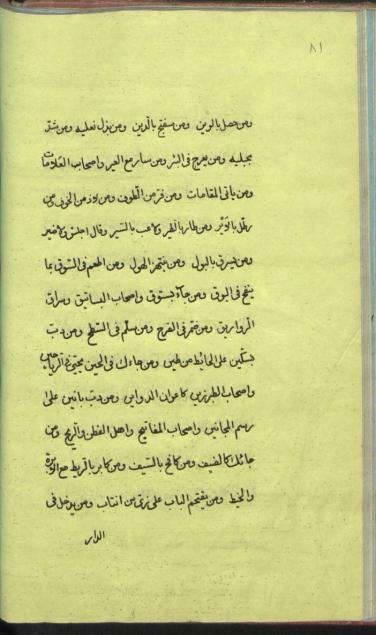 ٨١
ومن حصل بالرهن ومن سفتج بالدين ومن بذل نعليه ومن شد
بحبليه ومن يعرج فى البئر ومن سار مع العير واصحاب العلامات
ومن ياتى المقامات ومن فر من الطوف ومن لاذ من الخوف ومن
طار بالطير ولاعب بالسير وقال اجلس ولا ضير
ومن يسرق بالبول ومن ينتهز الهول ومن اطعم فى السوق بما
ينفخ فى البوق ومن جاء ببستوق واصحاب البساتيق وسراق
الروازيق ومن ضبر فى الضرح ومن سلم فى السطح ومن دب
بسكين على الحائط من طين ومن جاءك فى الحين يحيى بالرياحين
واصحاب الطبرزين كاعوان الدواوين ومن دب بانين على
رسم المجانين واصحاب المفاتيح واهل القطن والريح ومن
جائك كالضيف ومن كافح بالسيف ومن كابر بالربط مع الابرة
والخيط ومن يقتحم الباب على زى من انتاب ومن يدخل فى
الدار